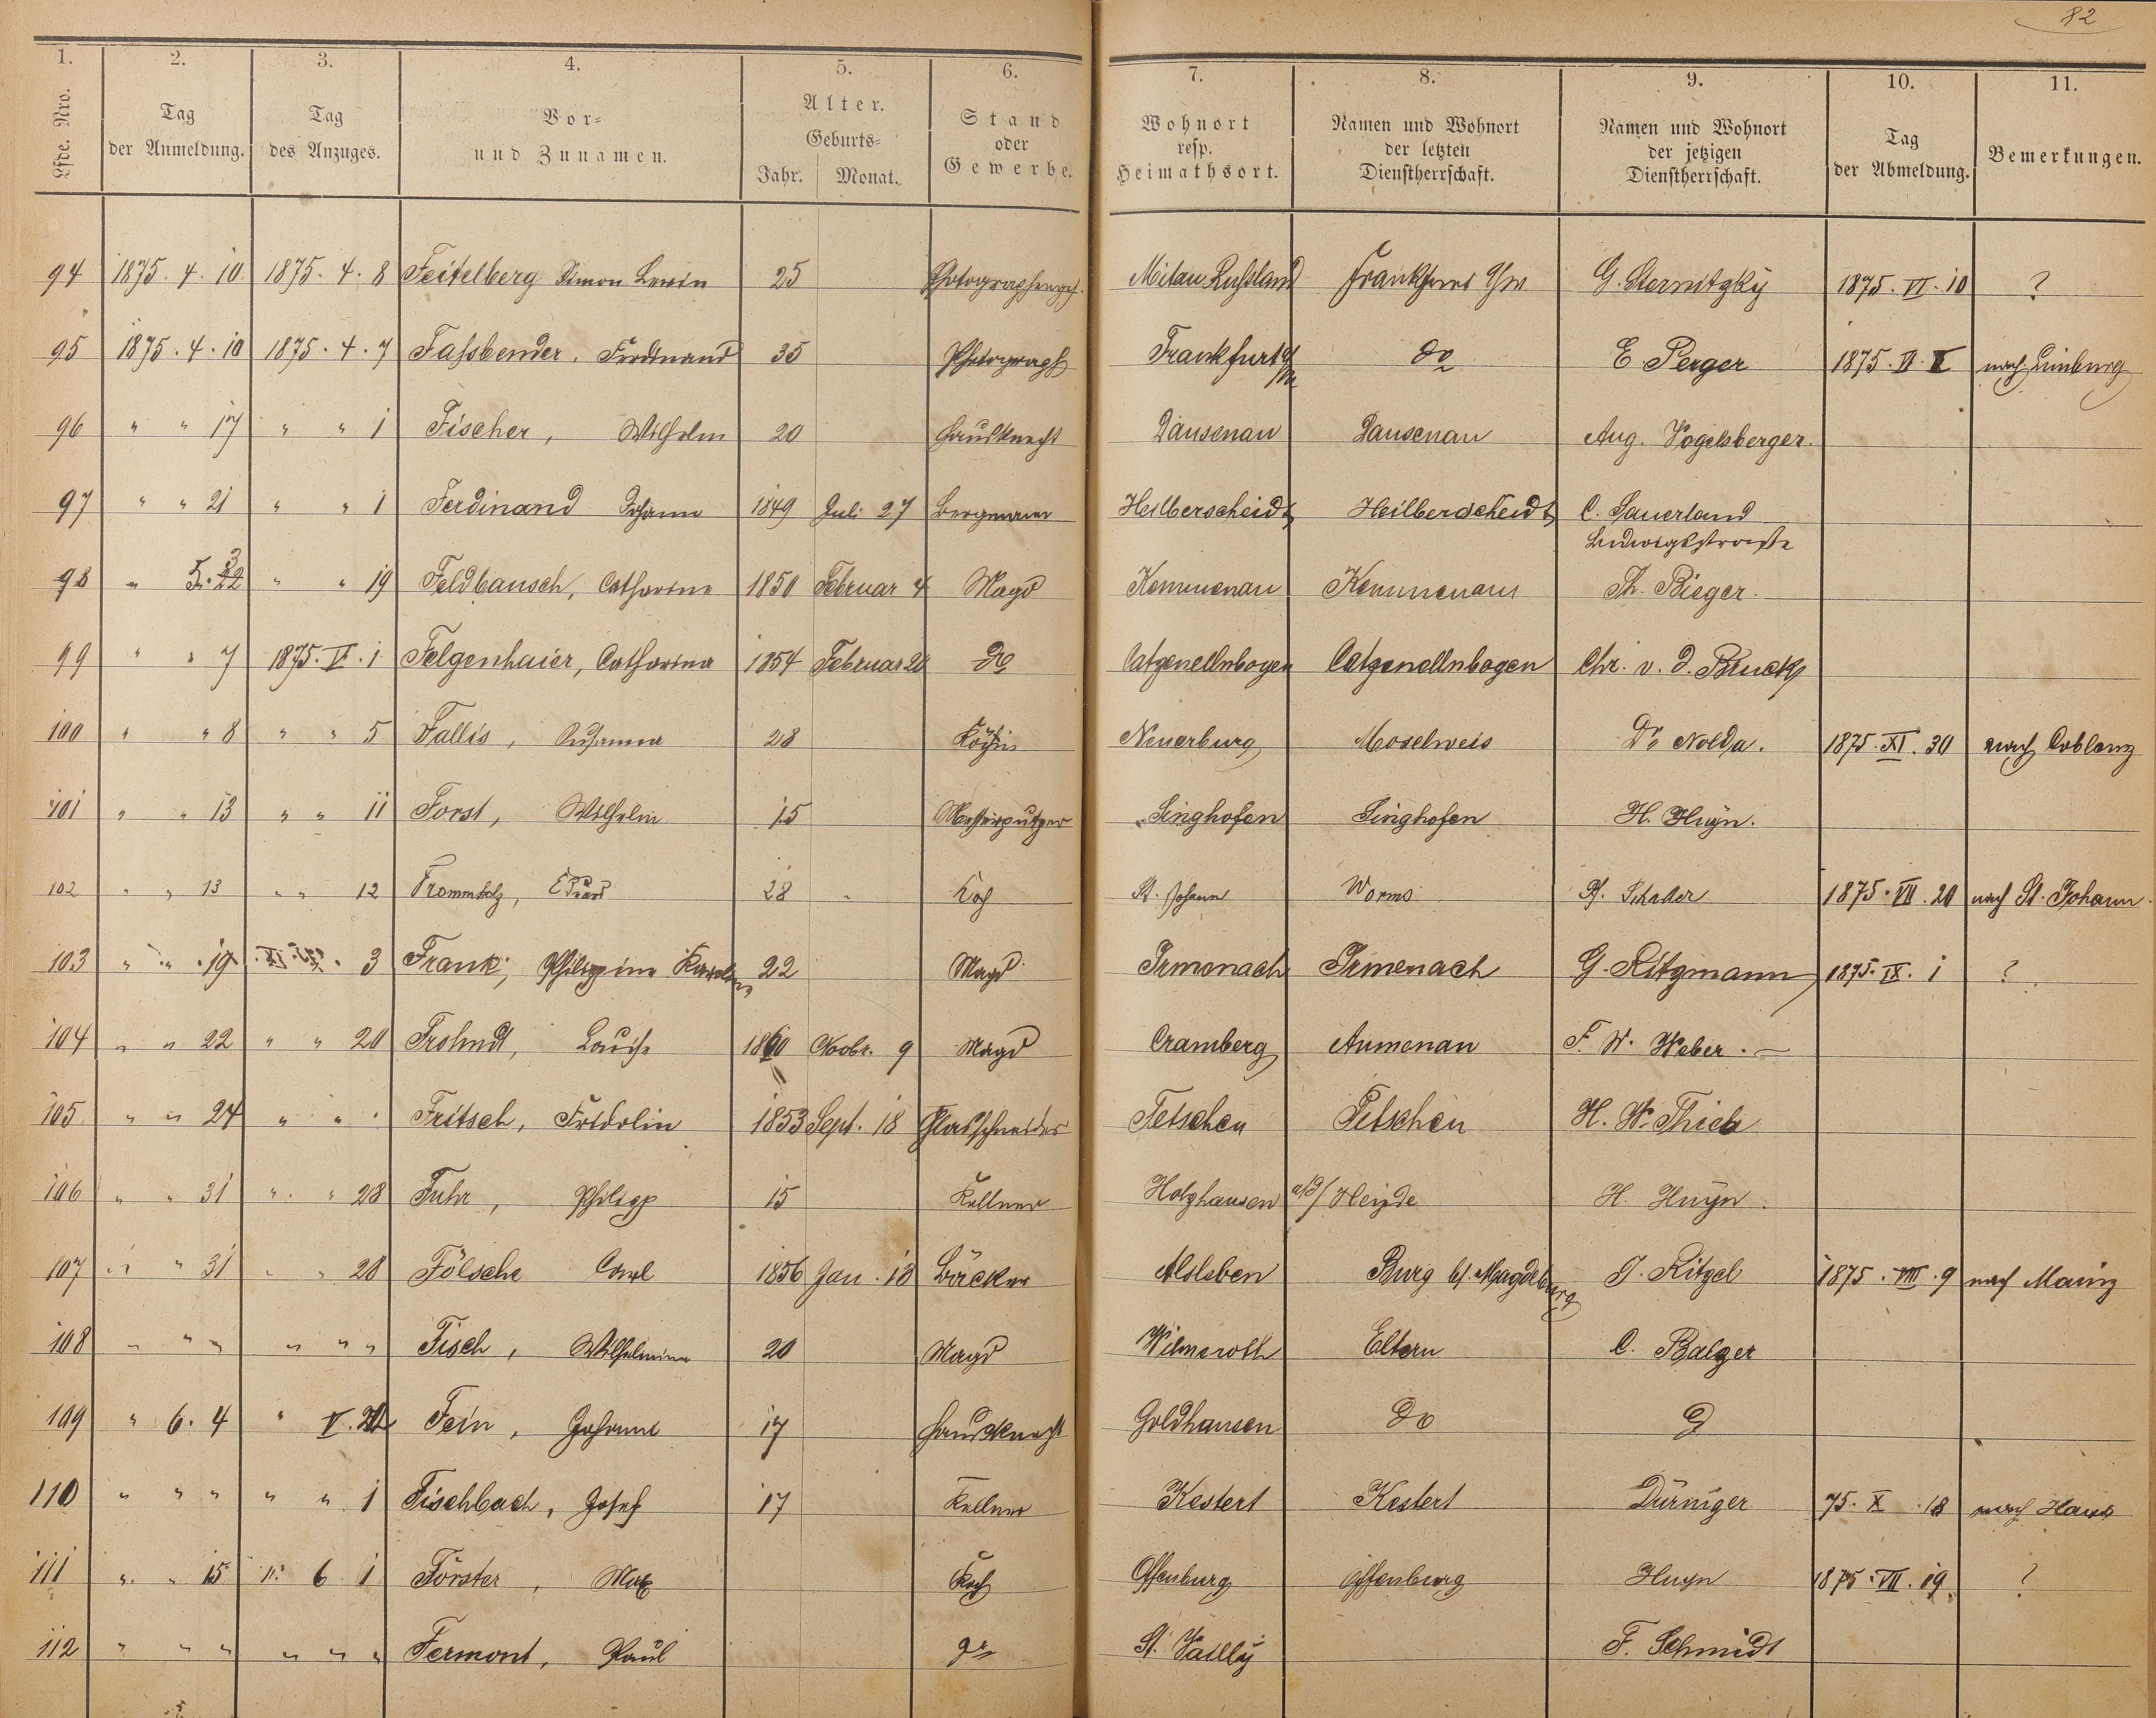 82
1. 2. 3. 4. 5. 6. 7. 8. 9. 10. 11.
Lfde. Nro. Tag der Anmeldung. Tag des Anzuges. Vor- und Zunamen. Alter. Geburts- Jahr. Monat. Stand oder Gewerbe. Wohnort resp. Heimathsort. Namen und Wohnort der letzten Dienstherrschaft. Namen und Wohnort der jetzigen Dienstherrschaft. Tag der Abmeldung. Bemerkungen.
94 1875. 4. 10 1875. 4. 8 Feitelberg Simon Lewin 25 Mitau Russland Frankfurt G. Sternitzky 1875. VI. 10 ?
95 1875. 4. 10 1875. 4. 7 Fassbender, Ferdinand 35 Photograph Frankfurt a/M do E Perger 1875. nach Limburg
96 " " 17 " " 1 Fischer, Wilhelm 20 Hausknecht Dausenau Dausenau Aug. Vogelsberger.
97 " " 21 " " 1 Ferdinand Johann 1849 Juli 27 Bergmann Heilberscheidt Heilberscheidt C. Sauerland
Ludwigsstrasse
98 " 5. " " 19 Feldbausch, Catharina 1850 Februar 4 Magd Kemmenau Kemmenau Th. Bieger.
99 " " 7 1875. V. 1 Felgenhaier, Catharina 1854 Februar do Catzenellnbogen Catzenellnbogen Chr. v. d. Bruck
100 " " 8 " " 5 Fallis, Susanna 28 Köchin Neuerburg Moselweis Dr. Nolda. 1875. XI. 30 nach Coblenz
101 " " 13 " " 11 Forst, Wilhelm 15 Messerputzer Singhofen Singhofen H. Huyn.
102 " " 13 " " 12 Frommholz, Eduard 28 Koch St. Johann Worms 1875. VII. 20 nach St. Johann.
103 " " 19 3 Frank, Philippine Karoline 22 Magd Irmenach Irmenach G. Ritzmann 1875. IX. 1 ?
104 " " 22 " " 20 Frohndt, Louise 1860 Novbr. 9 Magd Cramberg Aumenau F. W. Weber.
105 " " 24 " " Fritsch, Fridolin 1853 Sept. 18 Glasschneider Tetschen Tetschen H. W. Thiel
106 " " 31 " " 28 Fuhr, Philipp 15 Kellner Holzhausen a/d/ Heyde H. Huyn.
107 " " 31 " " 28 Fölsche Carl 1856 Jan. 13 Bäcker Alsleben Burg b/ Magdeburg J. Ritzel 1875. VIII. 9 nach Mainz
108 " " " " " " Fisch, Wilhelmine 20 Magd Wilmeroth Eltern C. Balzer
109 " 6. 4 " V. Fein, Johann 17 Hausknecht Goldhausen do
110 " " " " " 1 Fischbach, Josef 17 Kellner Kestert Kestert Düringer 75. X 18 nach Haus
111 " " 15 " 6 1 Förster, Max Koch Offenburg Offenburg Huyn 1875. VII. 19. ?
112 " " " " " " Fermont, Paul do St. Vailly F. Schmidt